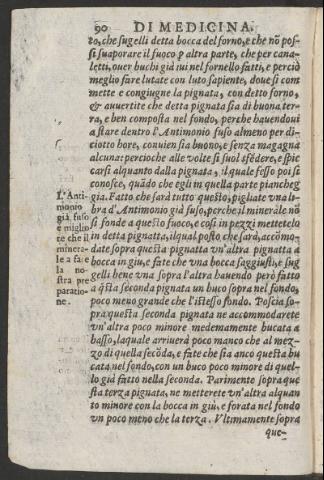 90 DI MEDICINA.
to, che sugelli detta bocca del forno, e che nõ pos-
si suaporare il fuoco p altra parte, che per cana-
letti, ouer buchi già iui nel fornello fatti, e perciò
meglio fare lutate con luto sapiente, doue si com
mette e congiugne la pignata, con detto forno,
& auuertite che detta pignata sia di buona ter-
ra, e ben composta nel fondo, perche hauendoui
a stare dentro l'Antimonio fuso almeno per di-
ciotto hore, conuien sia buono, e senza magagna
alcuna: percioche alle volte si suol sfédere, e spic
carsi alquanto dalla pignata, il quale fesso poi si
conosce, quãdo che egli in quella parte piancheg
gia. Fatto che sarà tutto questo, pigliate vna li-
bra d'Antimonio già fuso, perche il minerale nõ
si fonde a questo fuoco, e così in pezzi mettetelo
in detta pignatta, il qual posto che sarà, accõmo-
date sopra questa pignatta vn'altra pignatta a
bocca in giu, e fate che vna bocca s'aggiusti, e sug
gelli bene vna sopra l'altra hauendo però fatto
a q̃sta seconda pignata un buco sopra nel fondo,
poco meno grande che l'istesso fondo. Poscia so-
pra questa seconda pignata ne accommodarete
vn'altra poco minore medemamente bucata a
basso, laquale arriuerà poco manco che al mez-
zo di quella secõda, e fate che sia anco questa bu
cata nel fondo, con un buco poco minore di quel-
lo già fatto nella seconda. Parimente sopra que
sta terza pignata, ne metterete vn'altra alquan
to minore con la bocca in giù, e forata nel fondo
vn poco meno che la terza. Vltimamente sopra
que-
L'Anti-
monio
già fuso
e miglio
re che il
minera-
le a fare
la no
stra pre
paratio-
ne.